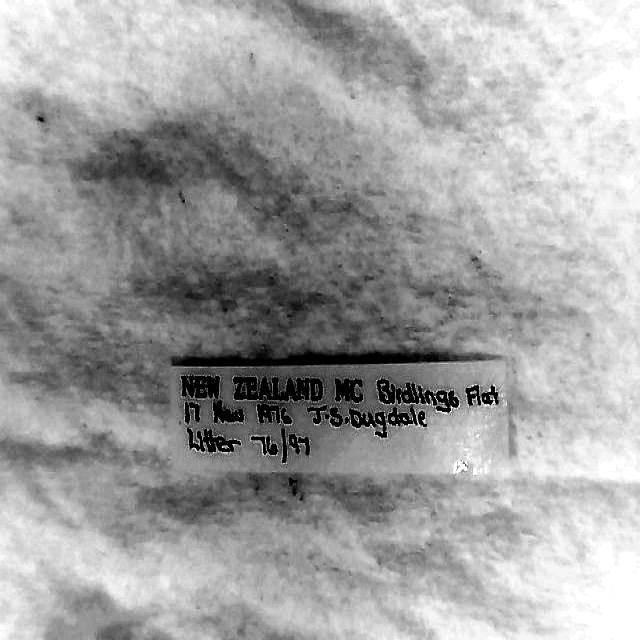 NEW ZEALAND MC Birdlings Flat
17 Nov 1976 J.S. Dugdale
Litter 76/97